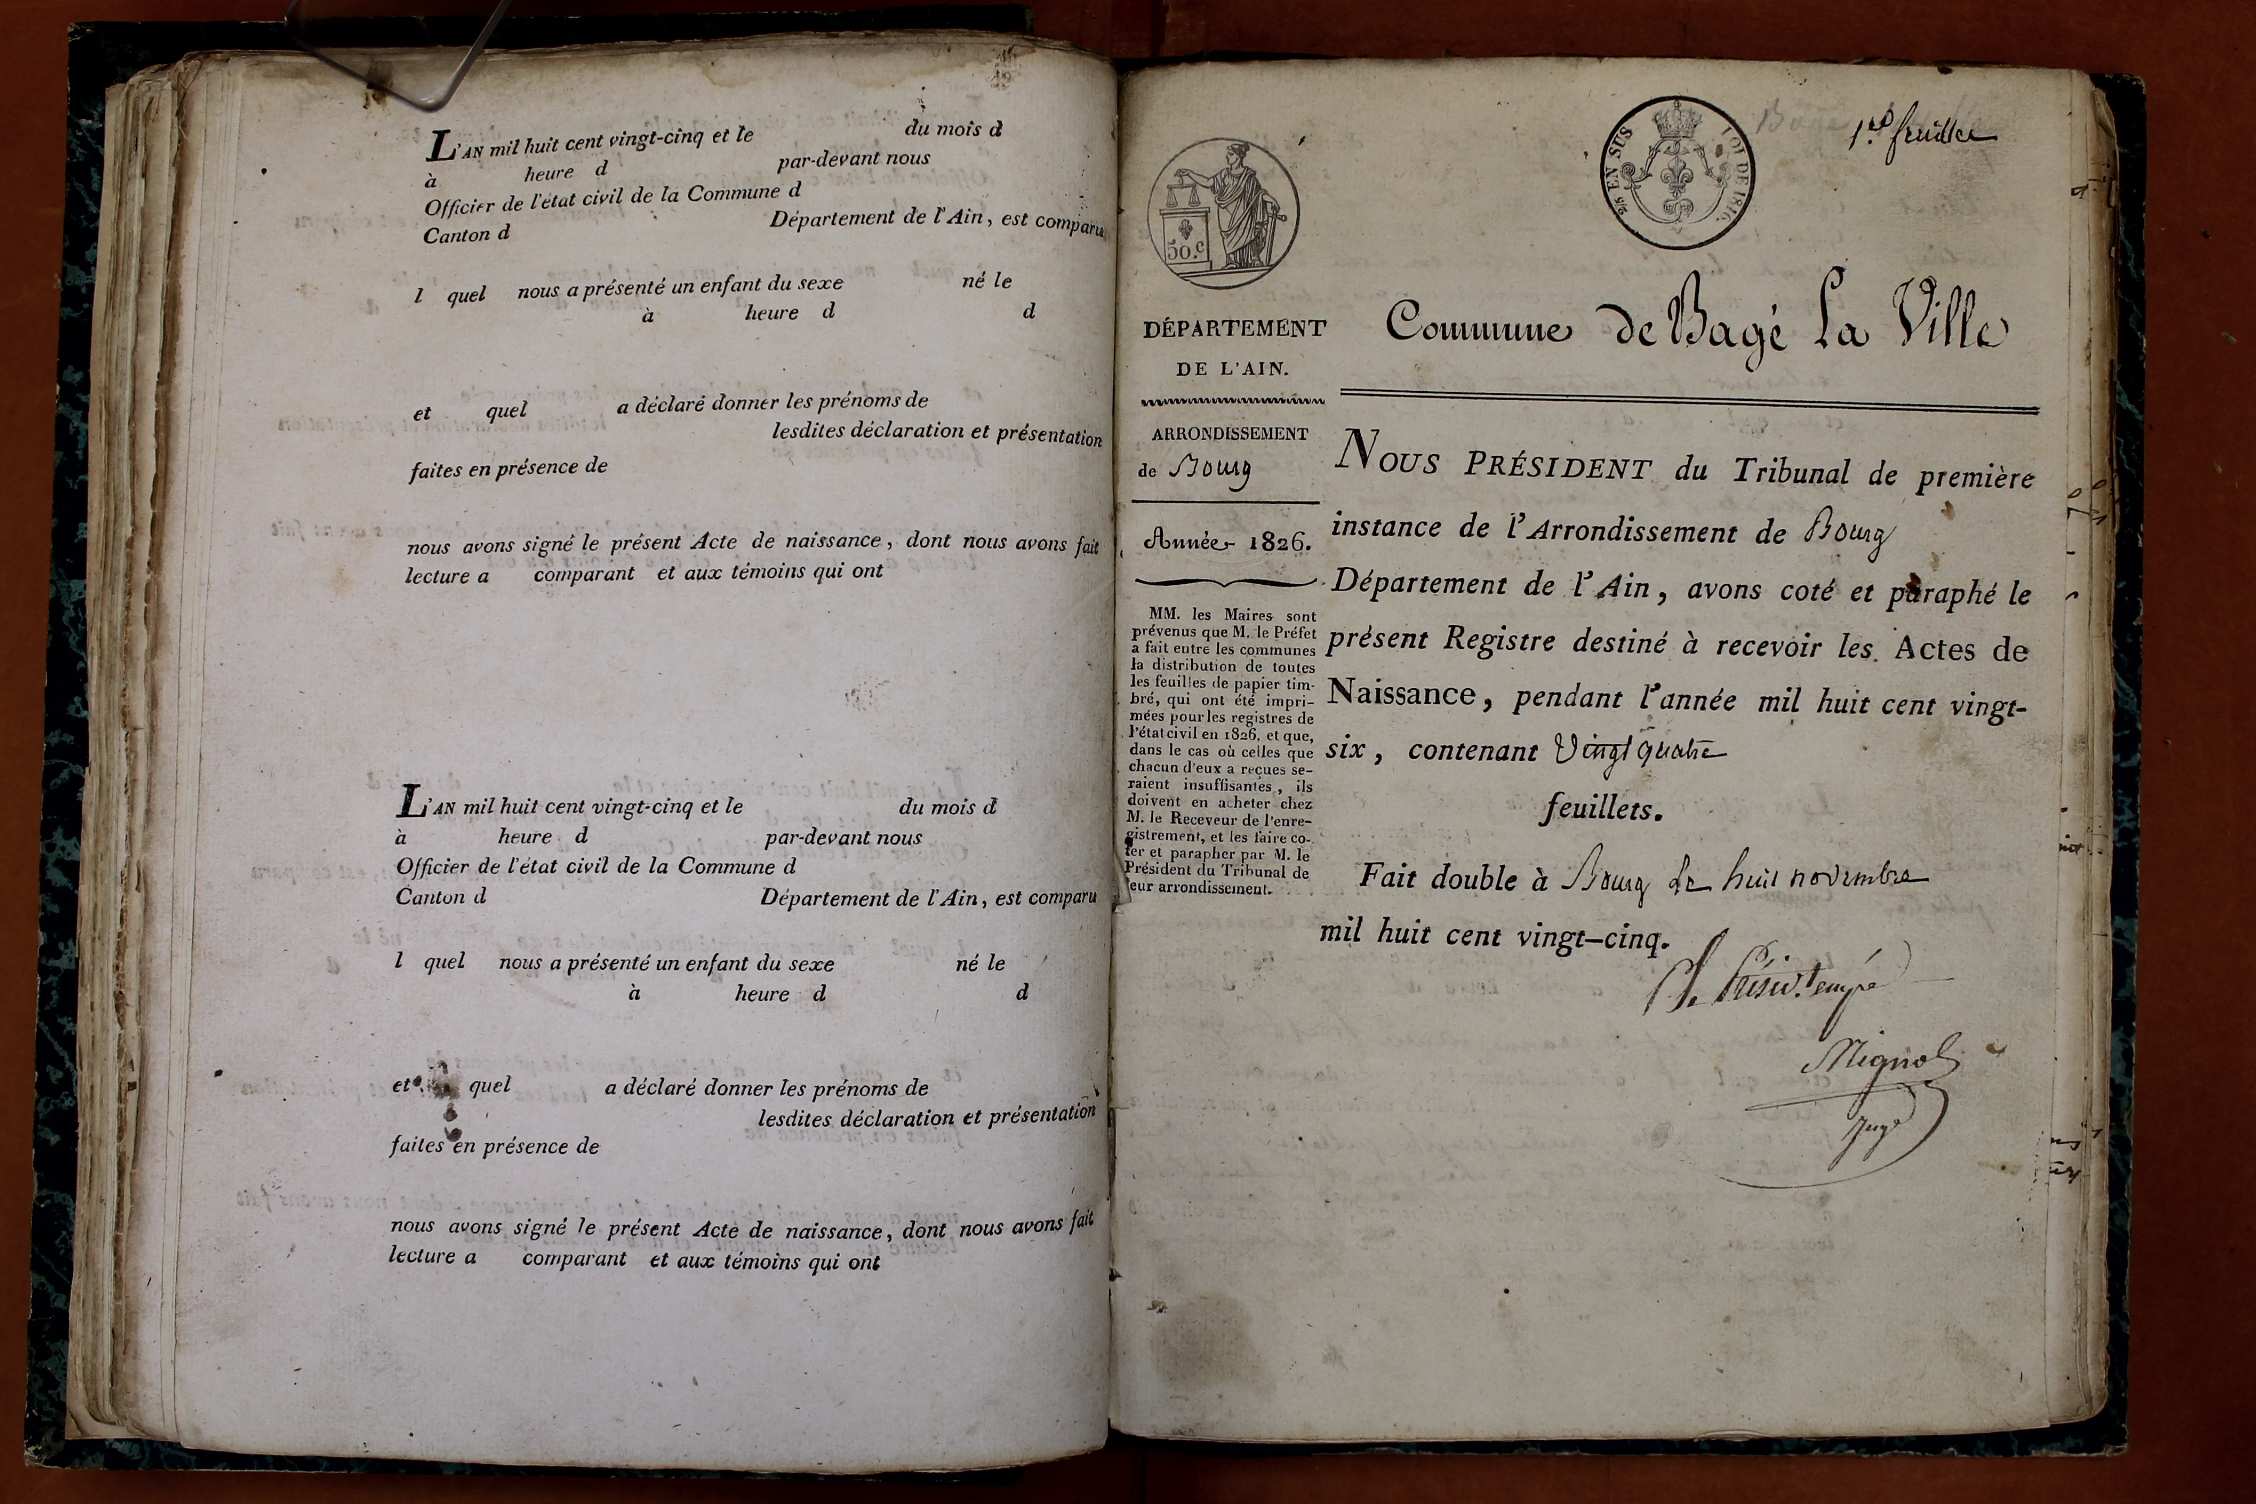 L'AN mil huit cent vingt-cinq et le du mois d
à heure d par-devant nous
Officier de l'état civil de la Commune d
Canton d Département de l'Ain, est comparu
l quel nous a présenté un enfant du sexe né le
à heure d d
et quel a déclaré donner les prénoms de
lesdites déclaration et présentation
faites en présence de
nous avons signé le présent Acte de naissance, dont nous avons fait
lecture a comparant et aux témoins qui ont
L'AN mil huit cent vingt-cinq et le du mois d
à heure d par-devant nous
Officier de l'état civil de la Commune d
Canton d Département de l'Ain, est comparu
l quel nous a présenté un enfant du sexe né le
à heure d d
et quel a déclaré donner les prénoms de
lesdites déclaration et présentation
faites en présence de
nous avons signé le présent Acte de naissance, dont nous avons fait
lecture a comparant et aux témoins qui ont
50.c
2/5 EN SUS LOI DE 1816.
1er feuillet
DÉPARTEMENT
DE L'AIN.
ARRONDISSEMENT
de Bourg
Année 1826.
MM. les Maires sont
prévenus que M. le Préfet
a fait entre les communes
la distribution de toutes
les feuilles de papier tim-
bré, qui ont été impri-
mées pour les registres de
l'état civil en 1826, et que,
dans le cas où celles que
chacun d'eux a reçues se-
raient insuffisantes, ils
doivent en acheter chez
M. le Receveur de l'enre-
gistrement, et les faire co-
ter et parapher par M. le
Président du Tribunal de
leur arrondissement.
Commune de Bagé La Ville
NOUS PRÉSIDENT du Tribunal de première
instance de l'Arrondissement de Bourg
Département de l'Ain, avons coté et paraphé le
présent Registre destiné à recevoir les Actes de
Naissance, pendant l'année mil huit cent vingt-
six, contenant Vingt quatre
feuillets.
Fait double à Bourg le huit novembre
mil huit cent vingt-cinq.
Mignot
Juge